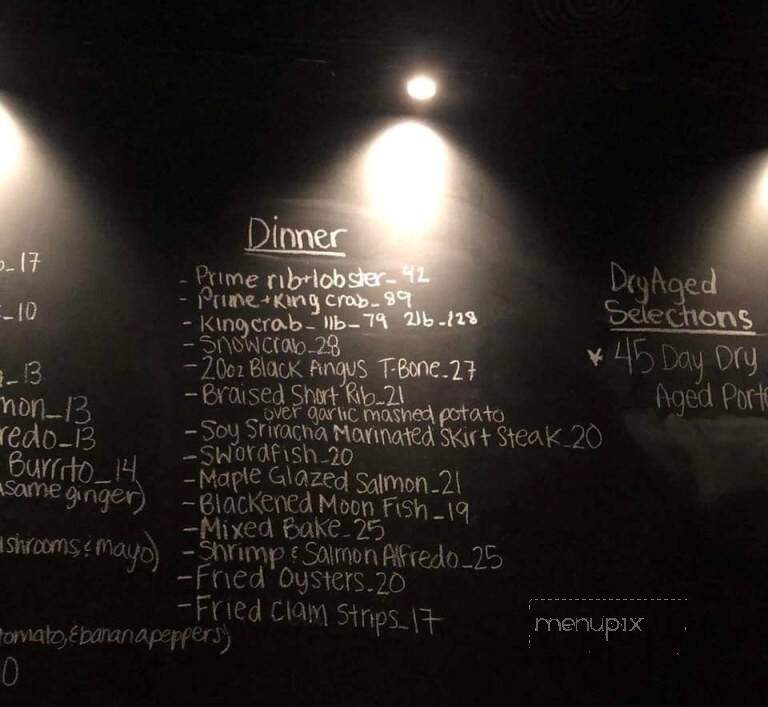 -17
-10
-13
mon-13
redo-13
Burrito-14
same ginger)
shrooms & mayo)
tomato, & banana peppers)
0
Dinner
- Prime rib+lobster- 42
- Prime + King crab- 89
- King crab- 1lb- 79 2lb-128
- Snowcrab-28
- 20oz Black Angus T-Bone-27
- Braised Short Rib-21
over garlic mashed potato
- Soy Sriracha Marinated Skirt Steak-20
- Swordfish-20
- Maple Glazed Salmon-21
- Blackened Moon Fish-19
- Mixed Bake-25
- Shrimp & Salmon Alfredo-25
- Fried Oysters-20
- Fried Clam Strips-17
Dry Aged
Selections
* 45 Day Dry
Aged Porte
menupix